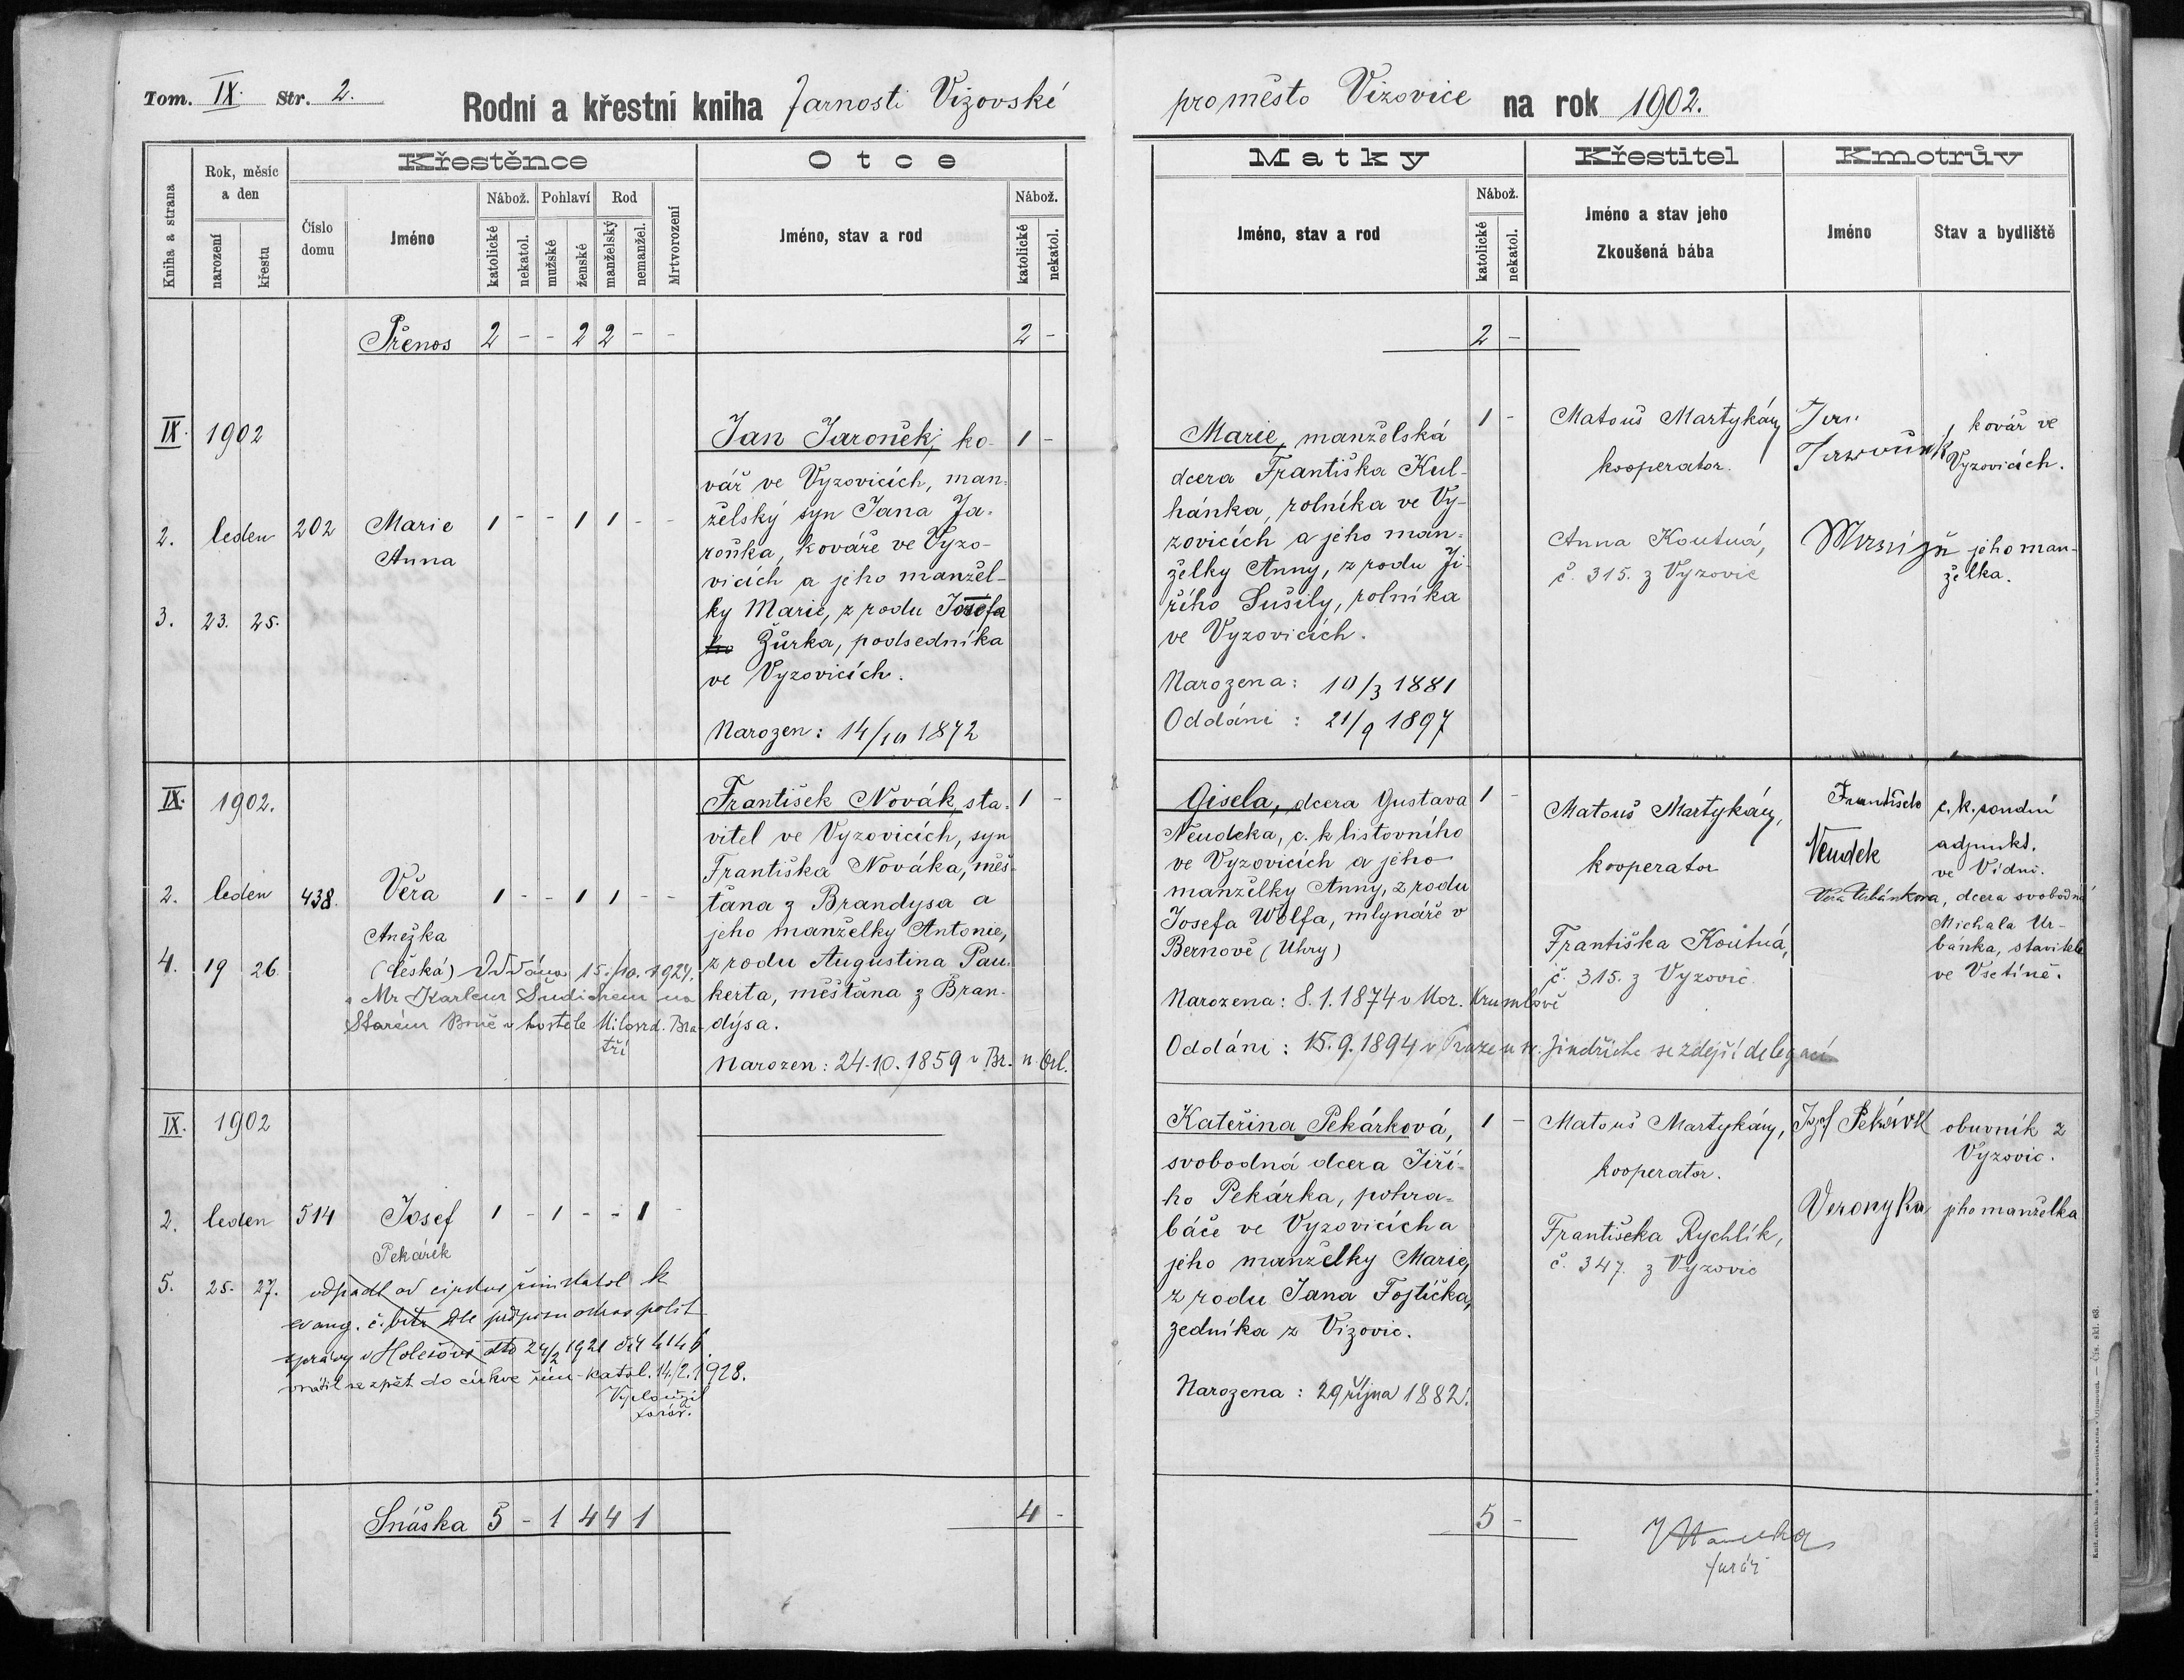 Tom. IX. Str. 2.
Rodní a křestní kniha farnosti Vizovské
pro město Vizovice na rok 1902.
Kniha a strana
Rok, měsíc
a den
narození
křestu
Číslo
domu
Křestěnce
Jméno
Nábož.
katolické
nekatol.
Pohlaví
mužské
ženské
Rod
manželský
nemanžel.
Mrtvorození
Otce
Jméno, stav a rod
Nábož.
katolické
nekatol.
Matky
Jméno, stav a rod
Nábož.
katolické
nekatol.
Křestitel
Jméno a stav jeho
Zkoušená bába
Kmotrův
Jméno
Stav a bydliště
Přenos 2 - - 2 2 - - 2 -
2 -
IX. 1902
2. leden 202 Marie 1 - - 1 1 - -
Anna
3. 23. 25.
Jan Jaroněk, ko- 1 -
vář ve Vyzovicích, man-
želský syn Jana Ja-
roňka, kováře ve Vyzo-
vicích a jeho manžel-
ky Marie, z rodu Josefa
ho Žůrka, podsedníka
ve Vyzovicích.
Narozen: 14/10 1872
Marie, manželská 1 -
dcera Františka Kul-
hánka, rolníka ve Vy-
zovicích a jeho man-
želky Anny, z rodu Ji-
řího Sušily, rolníka
ve Vyzovicích.
Narozena: 10/3 1881
Oddáni: 21/9 1897
Matouš Martykán,
kooperator.
Anna Koutná,
č. 315. z Vyzovic
Jan
kovář ve
Vyzovicích.
jeho man-
želka.
IX. 1902.
2. leden 438. Věra 1 - - 1 1 - -
Anežka
4. 19 26
(česká) Oddána 15./10. 1924.
s Mr Karlem Šudichem na
Starém Brně v kostele Milosrd. Bra-
tří
František Novák, sta- 1 -
vitel ve Vyzovicích, syn
Františka Nováka, měš-
ťana z Brandysa a
jeho manželky Antonie,
z rodu Augustina Pau-
kerta, měšťana z Bran-
dýsa.
Narozen: 24.10.1859 v Br. n. Orl.
Gisela, dcera Gustava 1 -
Neudeka, c. k listovního
ve Vyzovicích a jeho
manželky Anny, z rodu
Josefa Wolfa, mlynáře v
Bernově (Uhry)
Narozena: 8.1.1874 v Mor. Krumlově
Oddáni: 15.9.1894 v Praze u sv. Jindřicha se zdejší delegací
Matouš Martykán,
kooperator
Františka Koutná,
č. 315. z Vyzovic.
František
Neudek
c. k. soudní
adjunkt.
ve Vídni.
Věra Urbánkova, dcera svobodná
Michala Ur-
bánka, stavitele
ve Vsetíně.
IX. 1902
2. leden 514 Josef 1 - 1 - - 1 -
Pekárek
5. 25. 27.
odpadl od cirkve řím katol k
evang. č. bitr dle
správy v Holešově dto 24/2 1921 čís 4146.
vrátil se zpět do církve řím-katol. 14./2. 1928.
Vyloužil
farář.
Kateřina Pekárková, 1 -
svobodná dcera Jiří-
ho Pekárka, pohra-
báče ve Vyzovicích a
jeho manželky Marie,
z rodu Jana Fojtíčka,
zedníka z Vizovic.
Narozena: 29 října 1882.
Matouš Martykán,
kooperator.
Františka Rychlík,
č. 347. z Vyzovic
Josef Pekárek
obuvník z
Vyzovic.
Veronyka jeho manželka
Snáška 5 - 1 4 4 1 4 -
5 -
farář